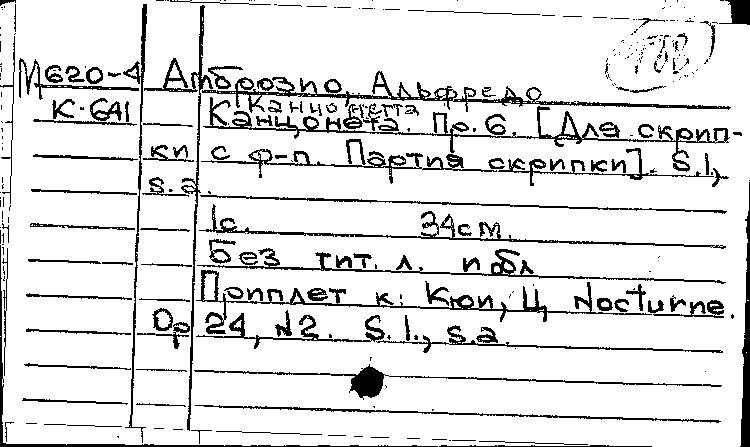 М620-4 Амброзио, Альфредо
Канцонетта
К-641 Канцонета. Пр. 6. [Для скрип-
ки с ф-п. Партия скрипки]. S.l.,
s.a.
1с. 34см.
Без тит. л. и обл
Приплет к: Кюи, Ц, Nocturne.
Op 24, N2. S.l., s.a.